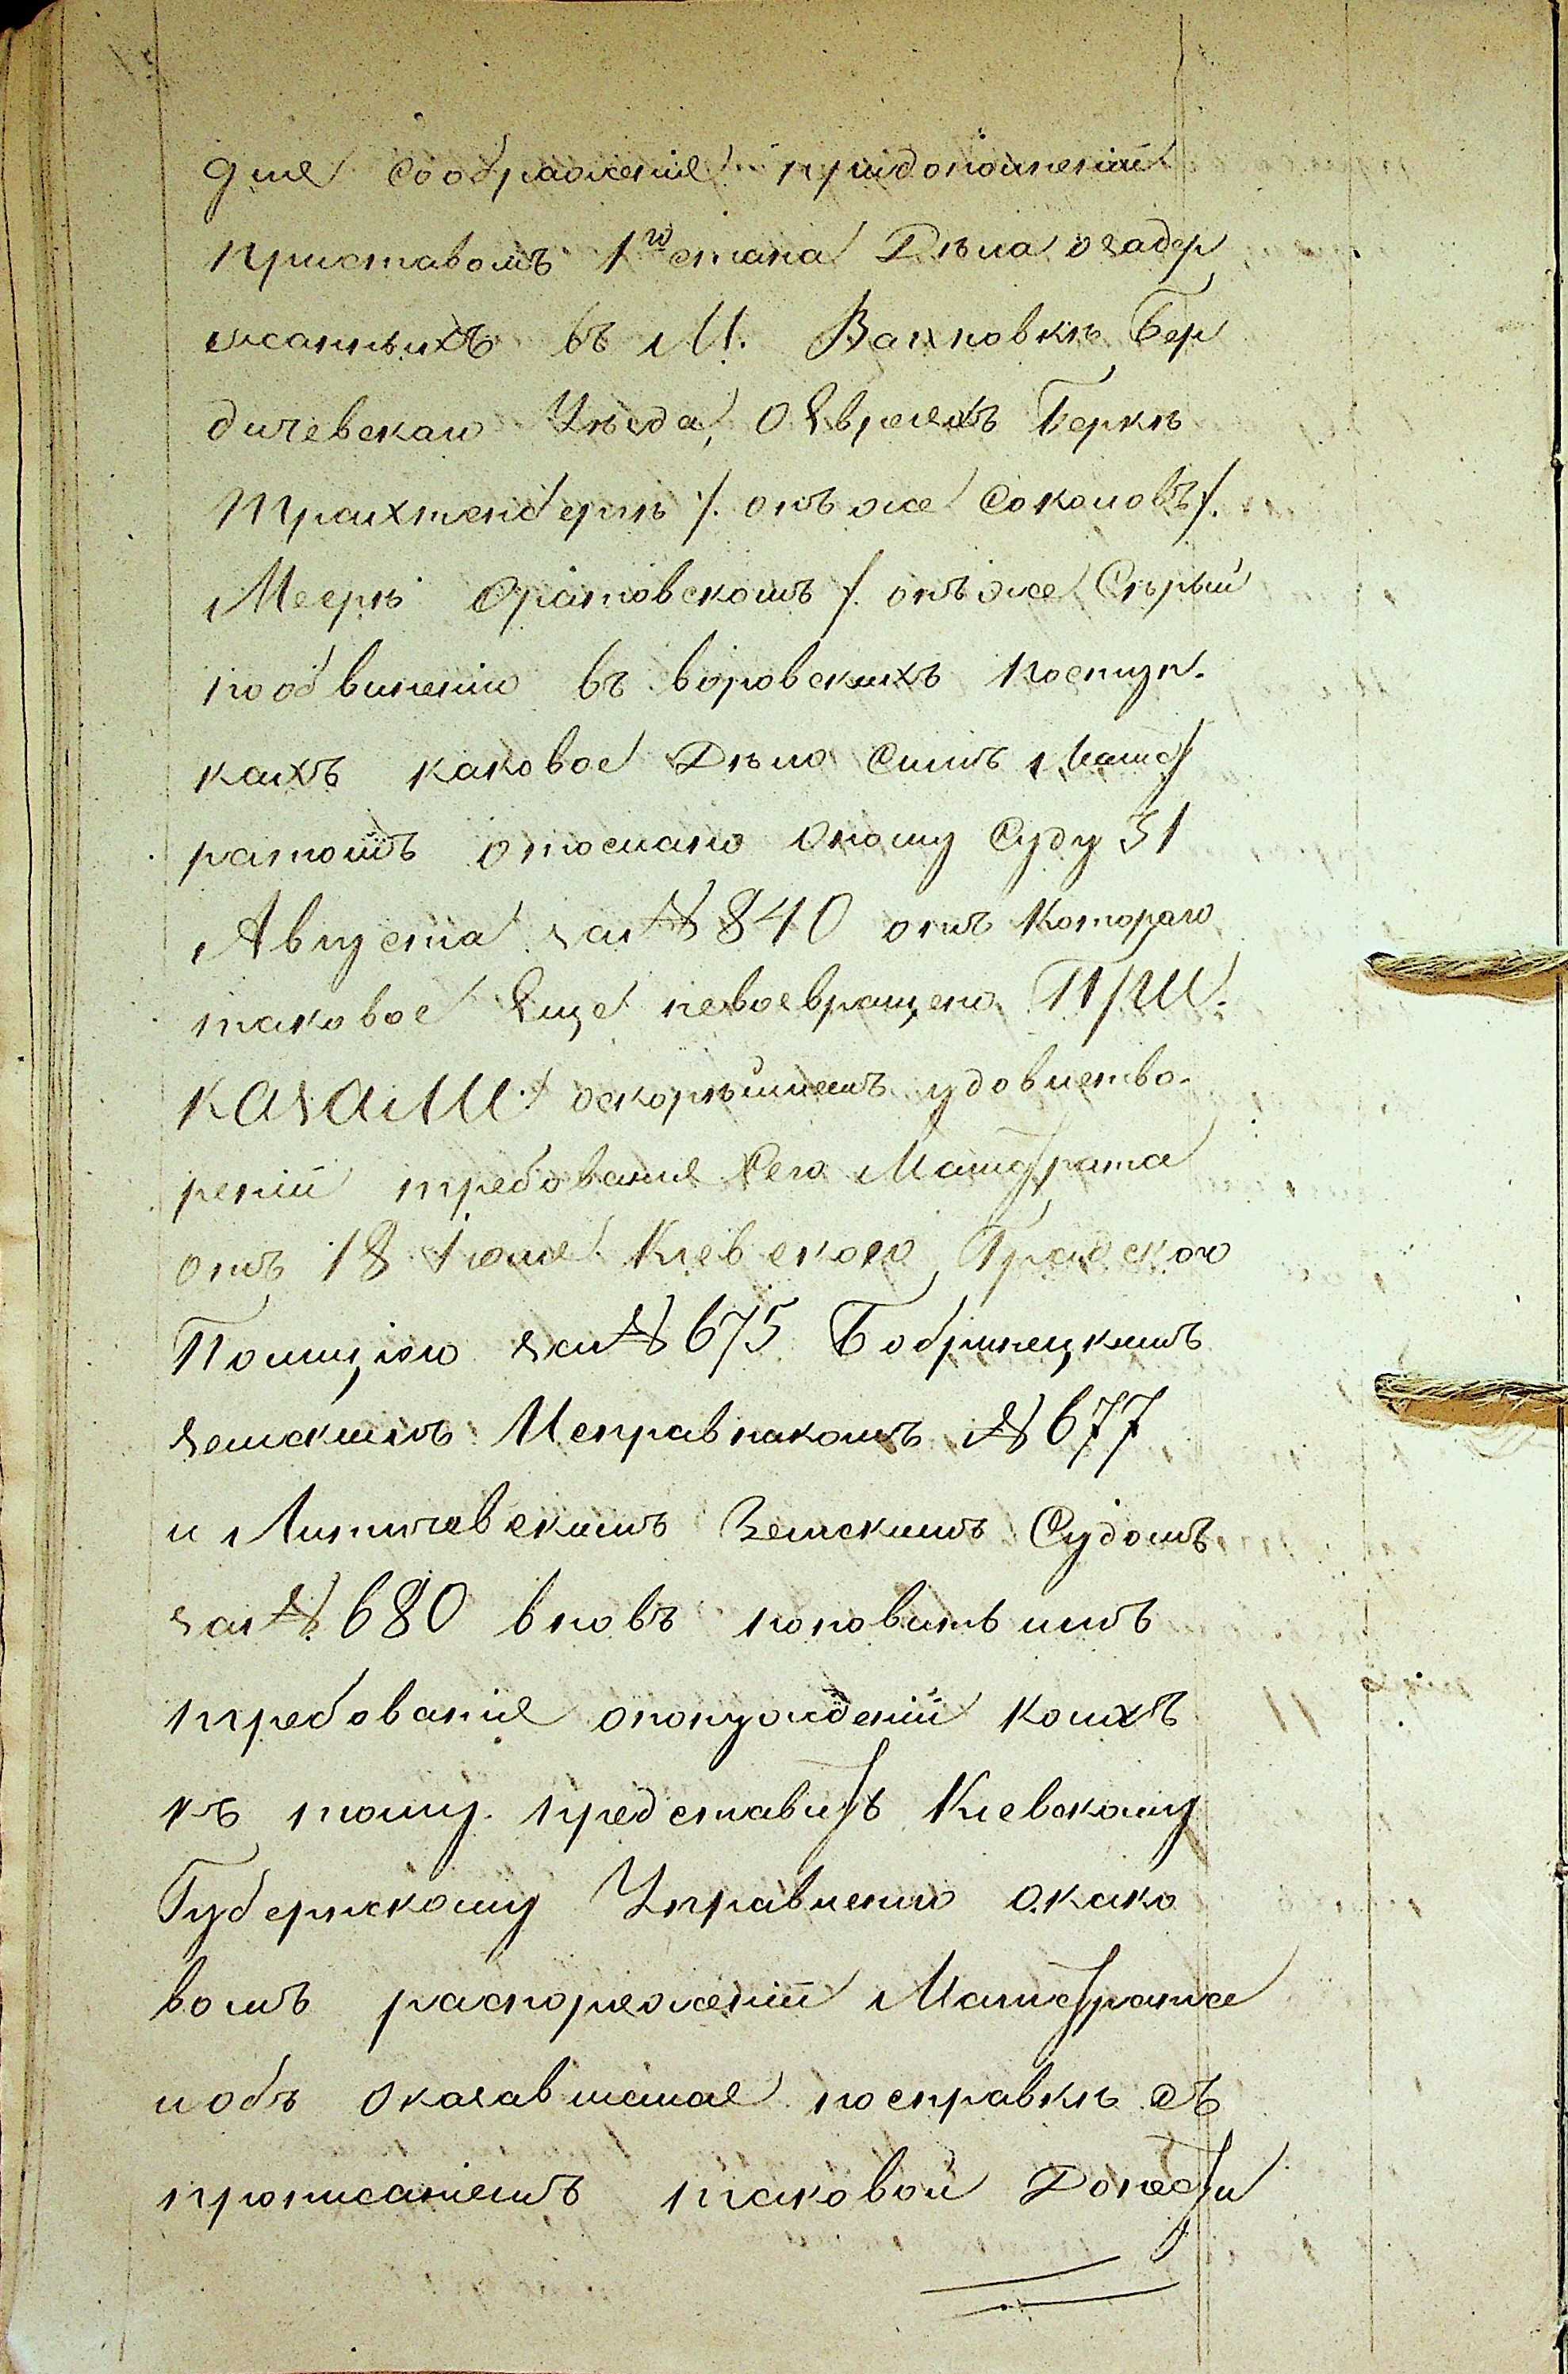 для соображенія придополненіи
приставомъ 1го стана Дѣла озадер
жанныхъ въ М. Вахновкѣ Бер
дичевскаго Уѣзда, О Евреяхъ Беркѣ
Трахтенбергѣ /. онъ же Соколовъ /.
Меерѣ Оратовскомъ /. онъ же Сѣрый
пообвиненію въ воровскихъ поступ.
кахъ каковое Дѣло симъ Магист
ратомъ отослано оному Суду 31
Августа за № 840 отъ котораго
таковое Еще невозвращено При.
казали: оскорѣйшемъ удовлетво.
реніи требованія Сего Магистрата
отъ 18 Іюля Кіевскою Градскою
Полиціею за № 675 Бобринецкимъ
земскимъ Исправникомъ № 677
и Литичевскимъ Земскимъ Судомъ
за № 680 вновъ поновить имъ
требованія опонужденіи коихъ
къ тому представить Кіевскому
Губернскому Управленію окако
вомъ распоряженіи Магистрата
иобъ оказавшемся посправкѣ съ
прописаніемъ таковой Донести